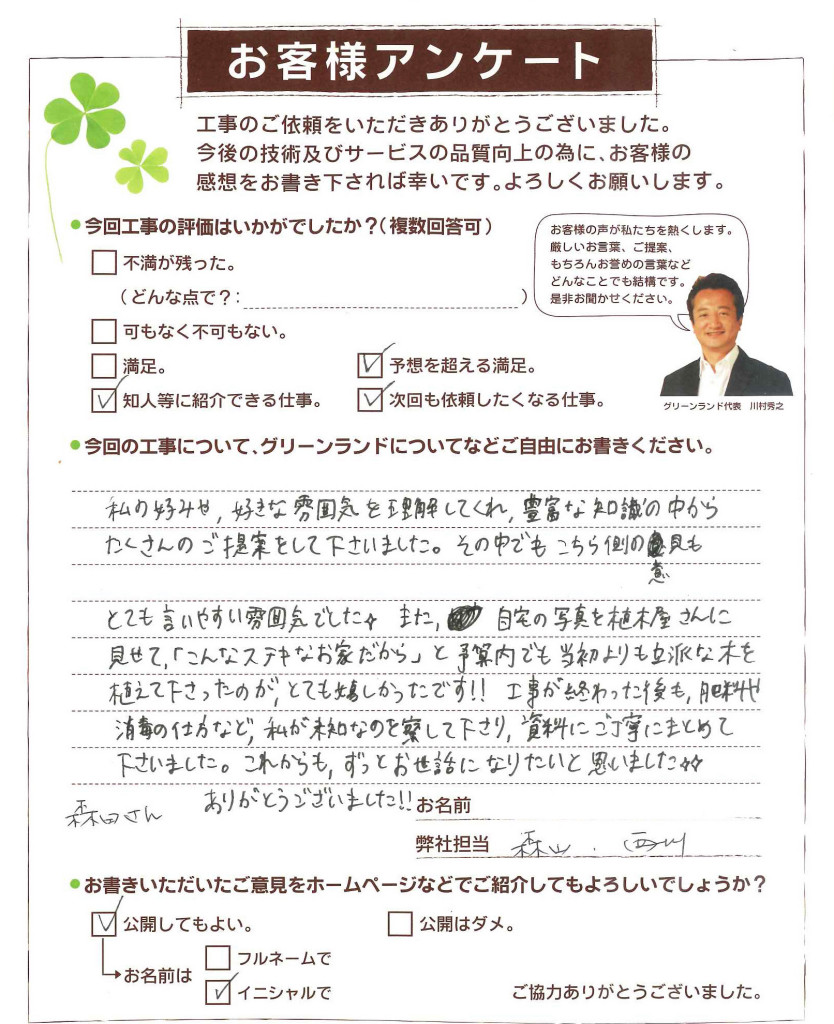 お客様アンケート
工事のご依頼をいただきありがとうございました。
今後の技術及びサービスの品質向上の為に、お客様の
感想をお書き下されば幸いです。よろしくお願いします。
今回工事の評価はいかがでしたか？（複数回答可）
不満が残った。
（どんな点で？：　）
可もなく不可もない。
満足。
予想を超える満足。
知人等に紹介できる仕事。
次回も依頼したくなる仕事。
お客様の声が私たちを熱くします。
厳しいお言葉、ご提案、
もちろんお誉めの言葉など
どんなことでも結構です。
是非お聞かせください。
グリーンランド代表　川村秀之
今回の工事について、グリーンランドについてなどご自由にお書きください。
私の好みや, 好きな雰囲気を理解してくれ, 豊富な知識の中から
たくさんのご提案をして下さいました。その中でもこちら側の意見も
とても言いやすい雰囲気でした☆ また, 自宅の写真を植木屋さんに
見せて,「こんなステキなお家だから」と予算内でも当初よりも立派な木を
植えて下さったのが, とても嬉しかったです!! 工事が終わった後も, 肥料や
消毒の仕方など, 私が未知なのを察して下さり, 資料にご丁寧にまとめて
下さいました。これからも, ずっとお世話になりたいと思いました☆☆
ありがとうございました!!
森田さん
お名前
弊社担当 森山 . 西川
お書きいただいたご意見をホームページなどでご紹介してもよろしいでしょうか？
公開してもよい。
公開はダメ。
お名前は
フルネームで
イニシャルで
ご協力ありがとうございました。